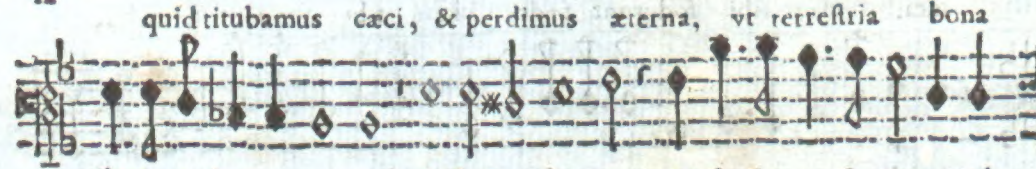 quid titubamus cæci, & perdimus æterna, vt terrestria bona